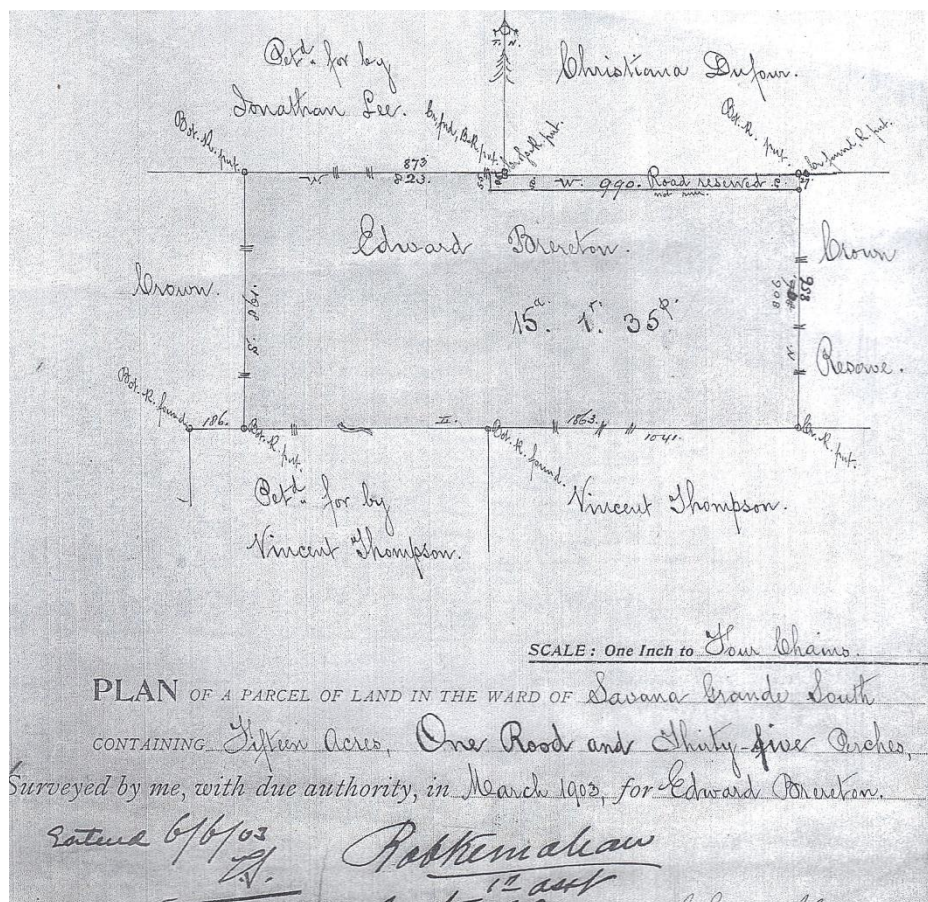 T. N.
Petd. for by
Jonathan Lee.
Christiana Dufour.
Bot. R. put.
Cr. fnd, B.R. put.
Bot. R. put.
Cr. found, R. put.
873
W 823.
W. 990. Road reserved
Edward Brereton.
Crown.
15a. 1r. 35p.
Crown
Reserve.
861
958
908
Bot. R. found.
186.
Bot. R. put.
E.
Bot. R. found.
1863.
1041.
Cr. R. put.
Petd. for by
Vincent Thompson.
Vincent Thompson.
SCALE: One Inch to Four Chains.
PLAN OF A PARCEL OF LAND IN THE WARD OF Savana Grande South
CONTAINING Fifteen Acres, One Rood and Thirty-five Perches,
Surveyed by me, with due authority, in March 1903, for Edward Brereton.
Entered 6/6/03